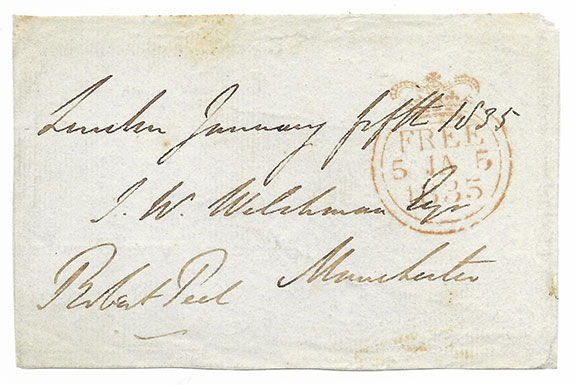 London January fifth 1835
FREE
5 JA 5
1835
J. W. Welchman Esqr
Manchester
Robert Peel